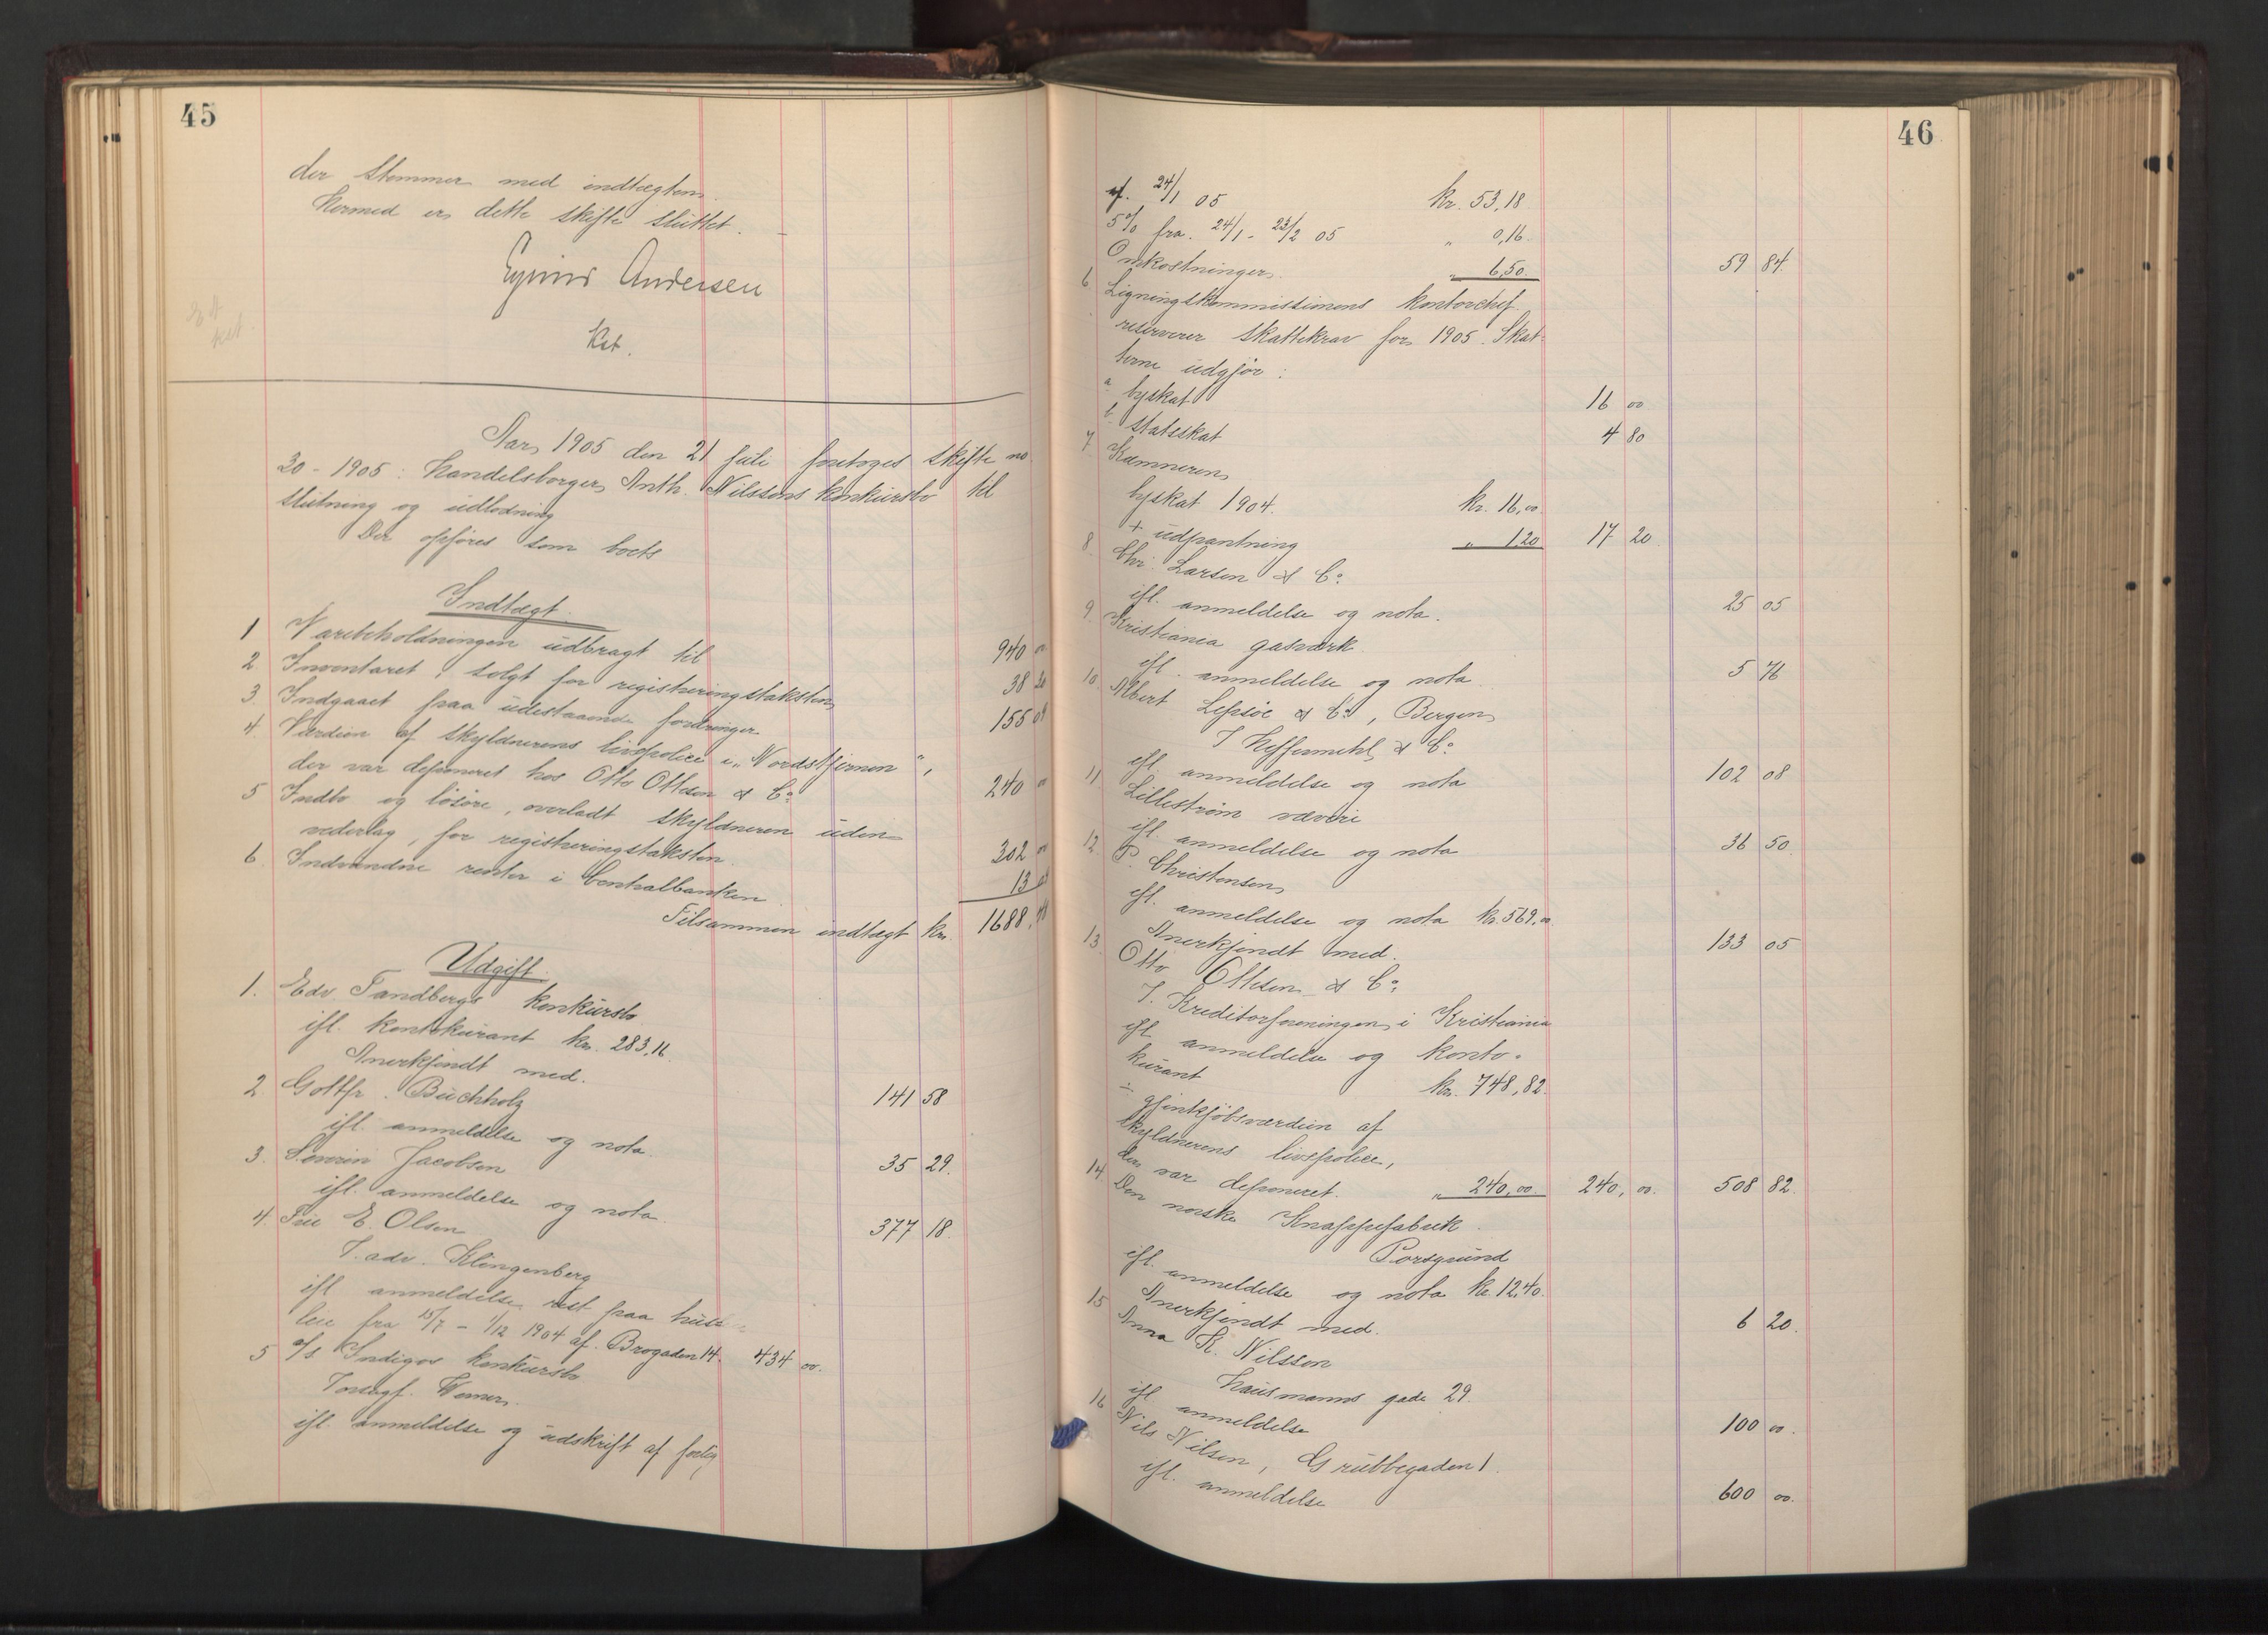 45
der stemmer med indtægten.
Hermed er dette skifte sluttet. –
Eyvind Andersen
kst.
Aar 1905 den 21 juli foretoges skifte no.
30 - 1905: handelsborger Anth. Nilssens konkursbo til
slutning og udlodning
Der opføres som boets
Indtægt.
1 Varebeholdningen udbragt til 940
2 Inventaret solgt for registreringstaksten 38 20
3 Indgaaet paa udestaaende fordringer 155
4. Værdien af skyldnerens livspolice i „Nordstjernen",
der var deponeret hos Otto Ottesen & Co 240
5 Indbo og løsøre, overladt skyldneren uden
vederlag, for registreringstaksten. 302
6. Indvundne renter i Centralbanken. 13
Tilsammen indtægt kr. 1688.
Udgift.
1. Edv. Tandbergs konkursbo
ifl. kontokurant kr. 283.16.
Anerkjendt med. 141 58
2 Gottfr. Buchholz
ifl. anmeldelse og nota. 35 29.
3. Severin Jacobsen
ifl. anmeldelse og nota 377 18.
4. Frie E. Olsen
V. adv. Klingenberg
ifl anmeldelse rest paa huse-
leie fra 15/7 - 1/12 1904 af. Brogaden 14. 434 00.
5 A/s Indigos konkursbo
V. ovsagf. Werner.
ifl. anmeldelse og udskrift af forlig
46
af. 24/1 05 kr. 53,18
5% fra. 24/1 - 23/2 05 „ 0,16.
Omkostninger. „ 6,50. 59 84.
6 Ligningskommissionens kontorchef
reserverer skattekrav for 1905. Skat-
terne udgjør:
a byskat 16 00
b statsskat 4 80
7 Kæmneren
byskat 1904. kr. 16,00.
+ udpantning „ 1,20 17 20
8 Chr. Larsen & Co
ifl. anmeldelse og nota. 25 05
9 Kristiania gasværk
ifl. anmeldelse og nota. 5 76
10. Albert Lepsøe & Co, Bergen
V Heffermehl & Co
ifl anmeldelse og nota 102 08
11 Lillestrøm væveri
ifl anmeldelse og nota 36 50.
12 P. Christensen
ifl. anmeldelse og nota kr. 569,00
Anerkjendt med. 133 05
13. Otto Ottesen & Co
V. Kreditorforeningen i Kristiania
ifl anmeldelse og konto-
kurant kr. 748,82.
÷ gjenkjøbsværdien af
skyldnerens livspolice,
der var deponeret. „ 240,00. 240, 00. 508 82.
14 Den norske Knappefabrik.
Porsgrund
ifl. anmeldelse og nota kr. 12,40.
Anerkjendt med. 6 20.
15 Anna K. Nilssen
Hausmanns gade 29.
ifl anmeldelse 100 00.
16 Nils Nilsen, Grubbegaden 1.
ifl. anmeldelse 600 00.